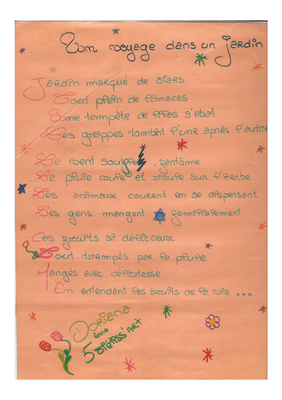 Mon voyage dans un jardin
Jardin marqué de stars
Tout plein de limaces
Une tempête de s'abat
Des grappes tombent l'une après l'autre
Le vent , fantôme
La pluie coule et étouffe sur l'herbe
Les animaux courent en se dispersant
Les gens mangent familialement
Ces biscuits si délicieux
Tout trempés par la pluie
Mangés avec délicatesse
En entendant les bruits de la
Doriana
5ème